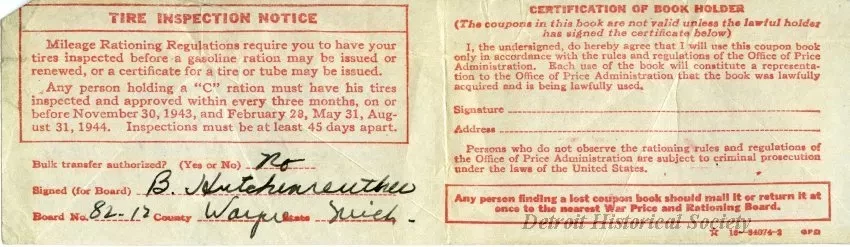 TIRE INSPECTION NOTICE
Mileage Rationing Regulations require you to have your
tires inspected before a gasoline ration may be issued or
renewed, or a certificate for a tire or tube may be issued.
Any person holding a “C” ration must have his tires
inspected and approved within every three months, on or
before November 30, 1943, and February 28, May 31, Aug-
ust 31, 1944. Inspections must be at least 45 days apart.
Bulk transfer authorized? (Yes or No) No
Signed (for Board) B.
Board No. 82-12 County Wayne State Mich.
CERTIFICATION OF BOOK HOLDER
(The coupons in this book are not valid unless the lawful holder
has signed the certificate below)
I, the undersigned, do hereby agree that I will use this coupon book
only in accordance with the rules and regulations of the Office of Price
Administration. Each use of the book will constitute a representa-
tion to the Office of Price Administration that the book was lawfully
acquired and is being lawfully used.
Signature
Address
Persons who do not observe the rationing rules and regulations of
the Office of Price Administration are subject to criminal prosecution
under the laws of the United States.
Any person finding a lost coupon book should mail it or return it at
once to the nearest War Price and Rationing Board.
Detroit Historical Society
☆ 16—34074-2 GPO